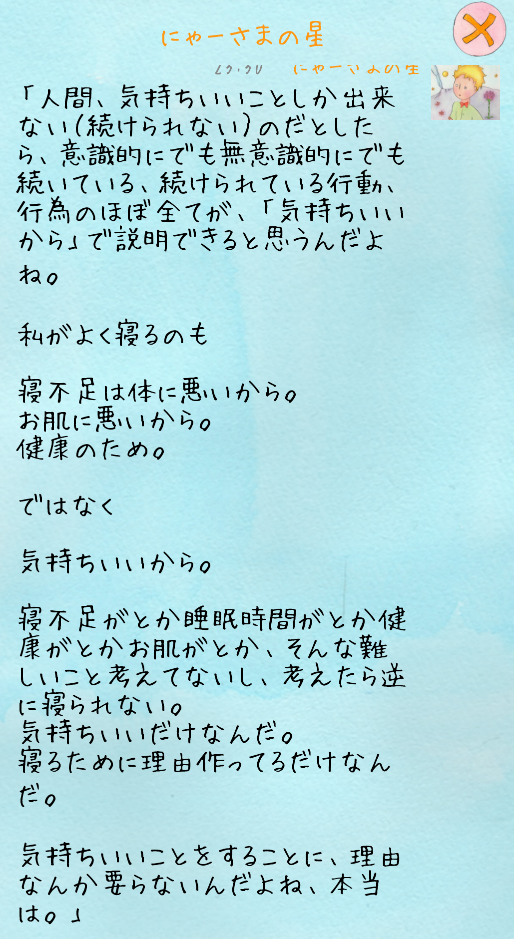 にゃーさまの星
23:50 にゃーさまの星
「人間、気持ちいいことしか出来
ない(続けられない)のだとした
ら、意識的にでも無意識的にでも
続いている、続けられている行動、
行為のほぼ全てが、「気持ちいい
から」で説明できると思うんだよ
ね。
私がよく寝るのも
寝不足は体に悪いから。
お肌に悪いから。
健康のため。
ではなく
気持ちいいから。
寝不足がとか睡眠時間がとか健
康がとかお肌がとか、そんな難
しいこと考えてないし、考えたら逆
に寝られない。
気持ちいいだけなんだ。
寝るために理由作ってるだけなん
だ。
気持ちいいことをすることに、理由
なんか要らないんだよね、本当
は。」